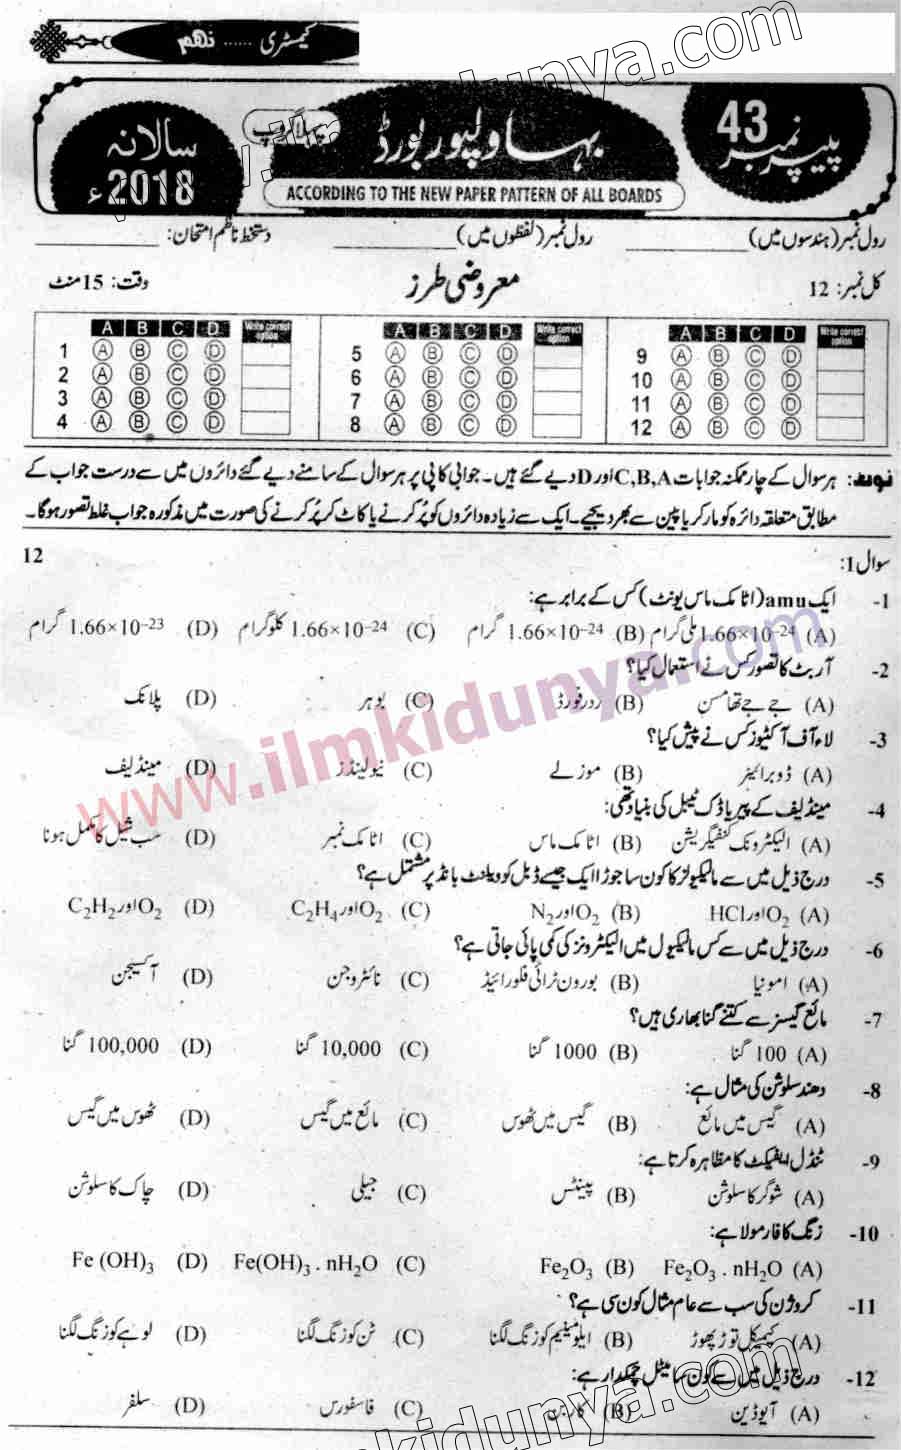 کیمسٹری ...... نہم
پیپر نمبر 43
بہاولپور بورڈ
پہلا گروپ
سالانہ 2018ء
ACCORDING TO THE NEW PAPER PATTERN OF ALL BOARDS
رول نمبر (ہندسوں میں) ____________ رول نمبر (لفظوں میں) ____________ دستخط ناظم امتحان: ____________
کل نمبر: 12 معروضی طرز وقت: 15 منٹ
A B C D Write correct option A B C D Write correct option A B C D Write correct option
1 A B C D 5 A B C D 9 A B C D
2 A B C D 6 A B C D 10 A B C D
3 A B C D 7 A B C D 11 A B C D
4 A B C D 8 A B C D 12 A B C D
نوٹ: ہر سوال کے چار ممکنہ جوابات C,B,A اور D دیے گئے ہیں۔ جوابی کاپی پر ہر سوال کے سامنے دیے گئے دائروں میں سے درست جواب کے
مطابق متعلقہ دائرہ کو مارکر یا پین سے بھر دیجیے۔ ایک سے زیادہ دائروں کو پُر کرنے یا کاٹ کر پُر کرنے کی صورت میں مذکورہ جواب غلط تصور ہوگا۔
سوال 1: 12
1- ایک amu (اٹامک ماس یونٹ) کس کے برابر ہے:
(A) 1.66×10–24 ملی گرام (B) 1.66×10–24 گرام (C) 1.66×10–24 کلوگرام (D) 1.66×10–23 گرام
2- آربٹ کا تصور کس نے استعمال کیا؟
(A) جے جے تھامسن (B) ردرفورڈ (C) بوہر (D) پلانک
3- لاء آف آکٹیوز کس نے پیش کیا؟
(A) ڈوبرائیز (B) موزلے (C) نیولینڈز (D) مینڈلیف
4- مینڈلیف کے پیریاڈک ٹیبل کی بنیاد تھی:
(A) الیکٹرونک کنفیگریشن (B) اٹامک ماس (C) اٹامک نمبر (D) سب شیل کا مکمل ہونا
5- درج ذیل میں سے مالیکیولز کا کون سا جوڑا ایک جیسے ڈبل کوویلنٹ بانڈ پر مشتمل ہے؟
(A) O₂ اور HCl (B) O₂ اور N₂ (C) O₂ اور C₂H₄ (D) O₂ اور C₂H₂
6- درج ذیل میں سے کس مالیکیول میں الیکٹرونز کی کمی پائی جاتی ہے؟
(A) امونیا (B) بورون ٹرائی فلورائیڈ (C) نائٹروجن (D) آکسیجن
7- مائع گیسز سے کتنے گنا بھاری ہیں؟
(A) 100 گنا (B) 1000 گنا (C) 10,000 گنا (D) 100,000 گنا
8- دھند سلوشن کی مثال ہے:
(A) گیس میں مائع (B) گیس میں ٹھوس (C) مائع میں گیس (D) ٹھوس میں گیس
9- ٹنڈل ایفیکٹ کا مظاہرہ کرتا ہے:
(A) شوگر کا سلوشن (B) پینٹس (C) جیلی (D) چاک کا سلوشن
10- زنگ کا فارمولا ہے:
(A) Fe₂O₃ . nH₂O (B) Fe₂O₃ (C) Fe(OH)₃ . nH₂O (D) Fe (OH)₃
11- کروژن کی سب سے عام مثال کون سی ہے؟
(A) کیمیکل توڑ پھوڑ (B) ایلومینیم کو زنگ لگنا (C) ٹن کو زنگ لگنا (D) لوہے کو زنگ لگنا
12- درج ذیل میں سے کون سا میٹل چمکدار ہے:
(A) آیوڈین (B) کاربن (C) فاسفورس (D) سلفر
www.ilmkidunya.com